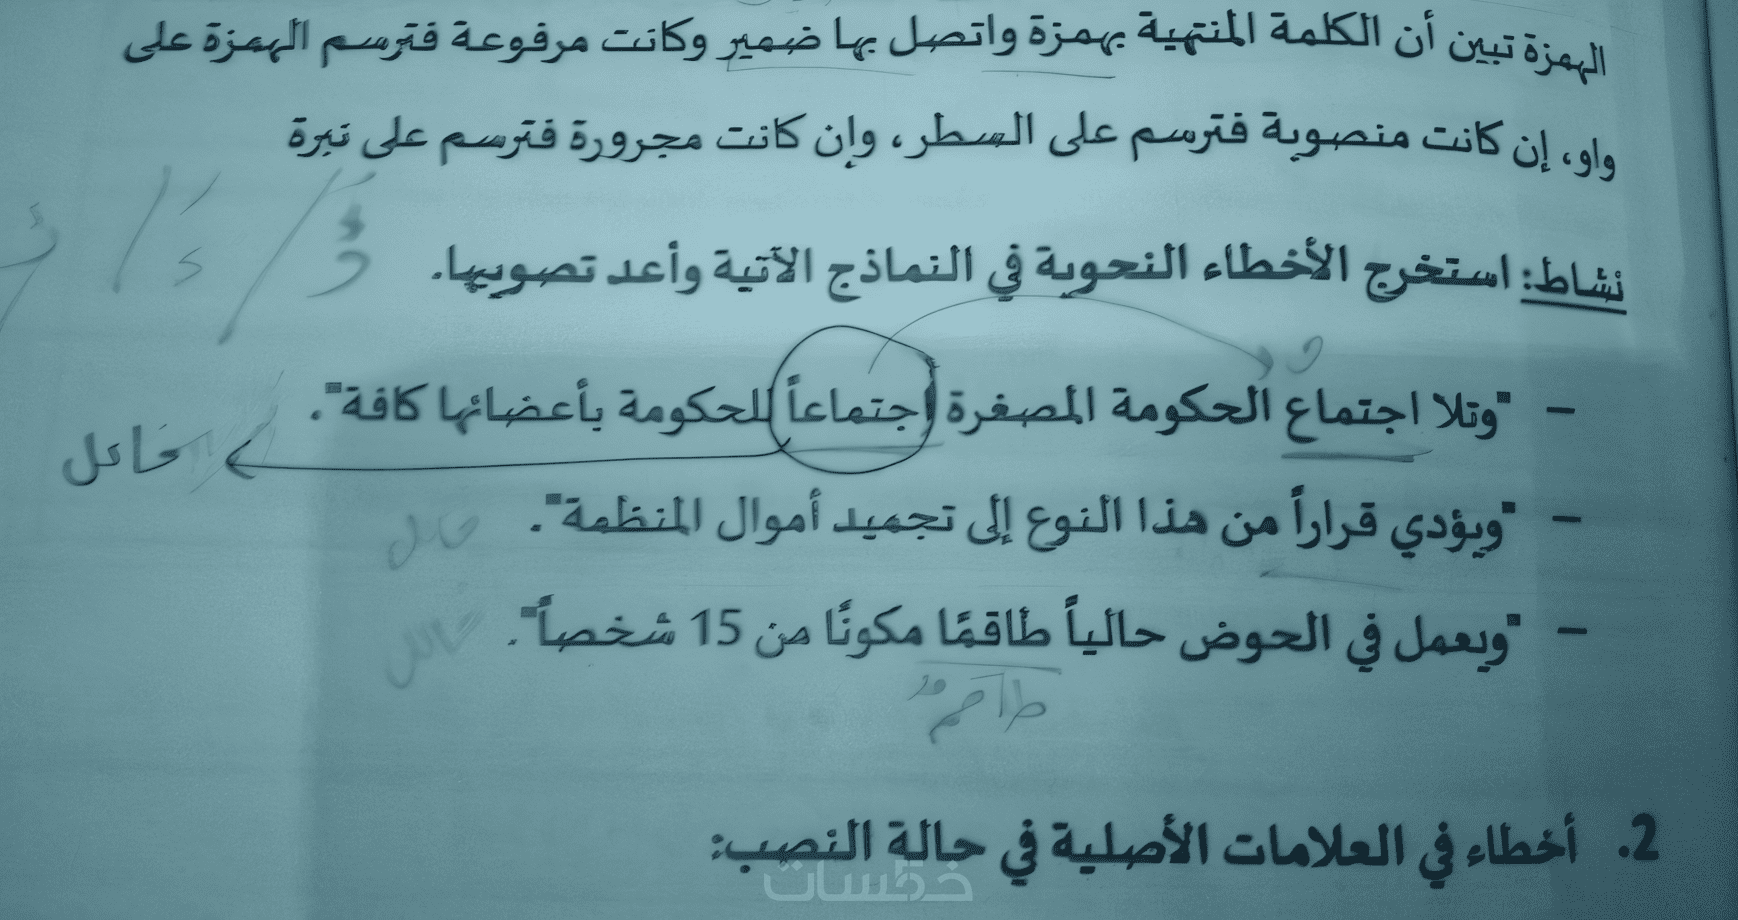 الهمزة تبين أن الكلمة المنتهية بهمزة واتصل بها ضمير وكانت مرفوعة فترسم الهمزة على
واو، إن كانت منصوبة فترسم على السطر، وإن كانت مجرورة فترسم على نبرة
ؤ / ء /
نشاط: استخرج الأخطاء النحوية في النماذج الآتية وأعد تصويبها.
– "وتلا اجتماع الحكومة المصغرة اجتماعاً للحكومة بأعضائها كافة".
– "ويؤدي قراراً من هذا النوع إلى تجميد أموال المنظمة".
– "ويعمل في الحوض حالياً طاقمًا مكونًا من 15 شخصاً".
2. أخطاء في العلامات الأصلية في حالة النصب:
خمسات